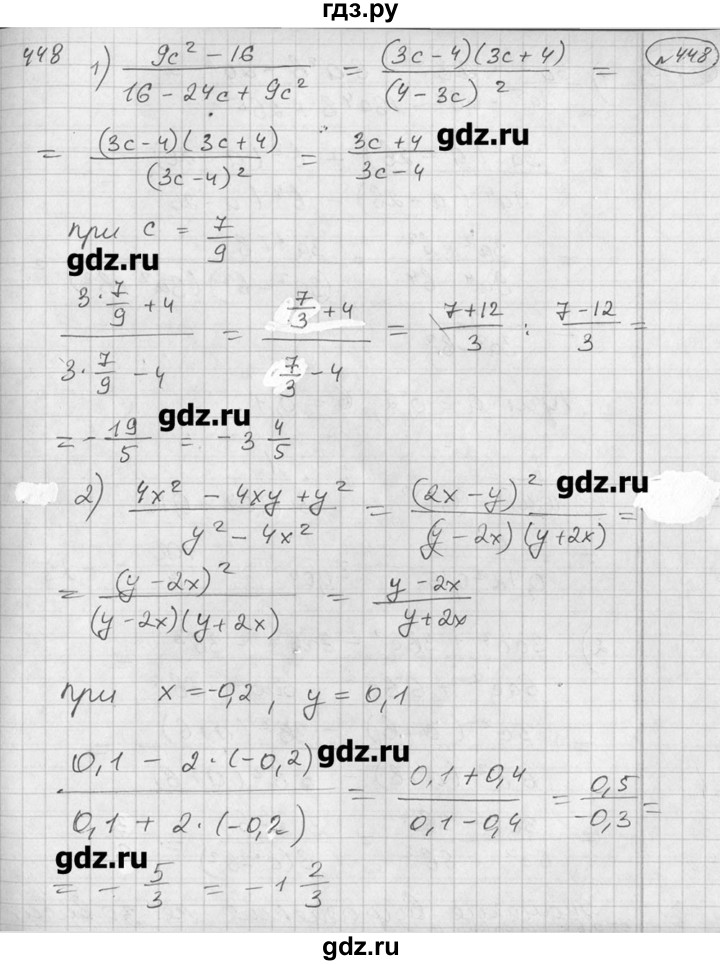 гдз.ру
448 1) (9c² − 16)/(16 − 24c + 9c²) = ((3c − 4)(3c + 4))/((4 − 3c)²) = №448
= ((3c − 4)(3c + 4))/((3c − 4)²) = (3c + 4)/(3c − 4) gdz.ru
при c = 7/9
gdz.ru
(3·7/9 + 4)/(3·7/9 − 4) = (7/3 + 4)/(7/3 − 4) = (7 + 12)/3 : (7 − 12)/3 =
gdz.ru
= −19/5 = −3 4/5
2) (4x² − 4xy + y²)/(y² − 4x²) = ((2x − y)²)/((y − 2x)(y + 2x)) = gdz.ru
= ((y − 2x)²)/((y − 2x)(y + 2x)) = (y − 2x)/(y + 2x)
при x = −0,2, y = 0,1
(0,1 − 2·(−0,2))/(0,1 + 2·(−0,2)) = (0,1 + 0,4)/(0,1 − 0,4) = 0,5/−0,3 =
gdz.ru
gdz.ru
= −5/3 = −1 2/3
gdz.ru